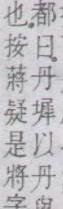 都曰。丹墀以丹
也。按蔣疑是將字